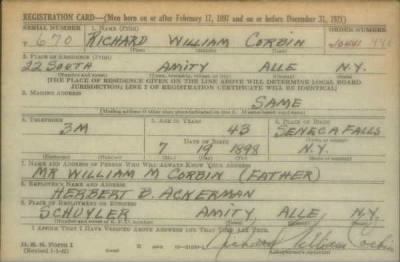 REGISTRATION CARD—(Men born on or after February 17, 1897 and on or before December 31, 1921)
SERIAL NUMBER 1. NAME (Print) ORDER NUMBER
T 670 RICHARD WILLIAM CORBIN
(First) (Middle) (Last)
2. PLACE OF RESIDENCE (Print)
22 SOUTH AMITY ALLE N.Y.
(Number and street) (Town, township, village, or city) (County) (State)
[THE PLACE OF RESIDENCE GIVEN ON THE LINE ABOVE WILL DETERMINE LOCAL BOARD
JURISDICTION; LINE 2 OF REGISTRATION CERTIFICATE WILL BE IDENTICAL]
3. MAILING ADDRESS
SAME
[Mailing address if other than place indicated on line 2. If same insert word same]
4. TELEPHONE 5. AGE IN YEARS 6. PLACE OF BIRTH
3M 43 SENECA FALLS
DATE OF BIRTH (Town or county)
7 19 1898 N.Y.
(Exchange) (Number) (Mo.) (Day) (Yr.) (State or country)
7. NAME AND ADDRESS OF PERSON WHO WILL ALWAYS KNOW YOUR ADDRESS
MR WILLIAM M CORBIN (FATHER)
8. EMPLOYER'S NAME AND ADDRESS
HERBERT B. ACKERMAN
9. PLACE OF EMPLOYMENT OR BUSINESS
SCHUYLER AMITY, ALLE, N.Y.
(Number and street or R. F. D. number) (Town) (County) (State)
I AFFIRM THAT I HAVE VERIFIED ABOVE ANSWERS AND THAT THEY ARE TRUE.
D. S. S. Form 1 Richard William Corbin
(Registrant's signature)